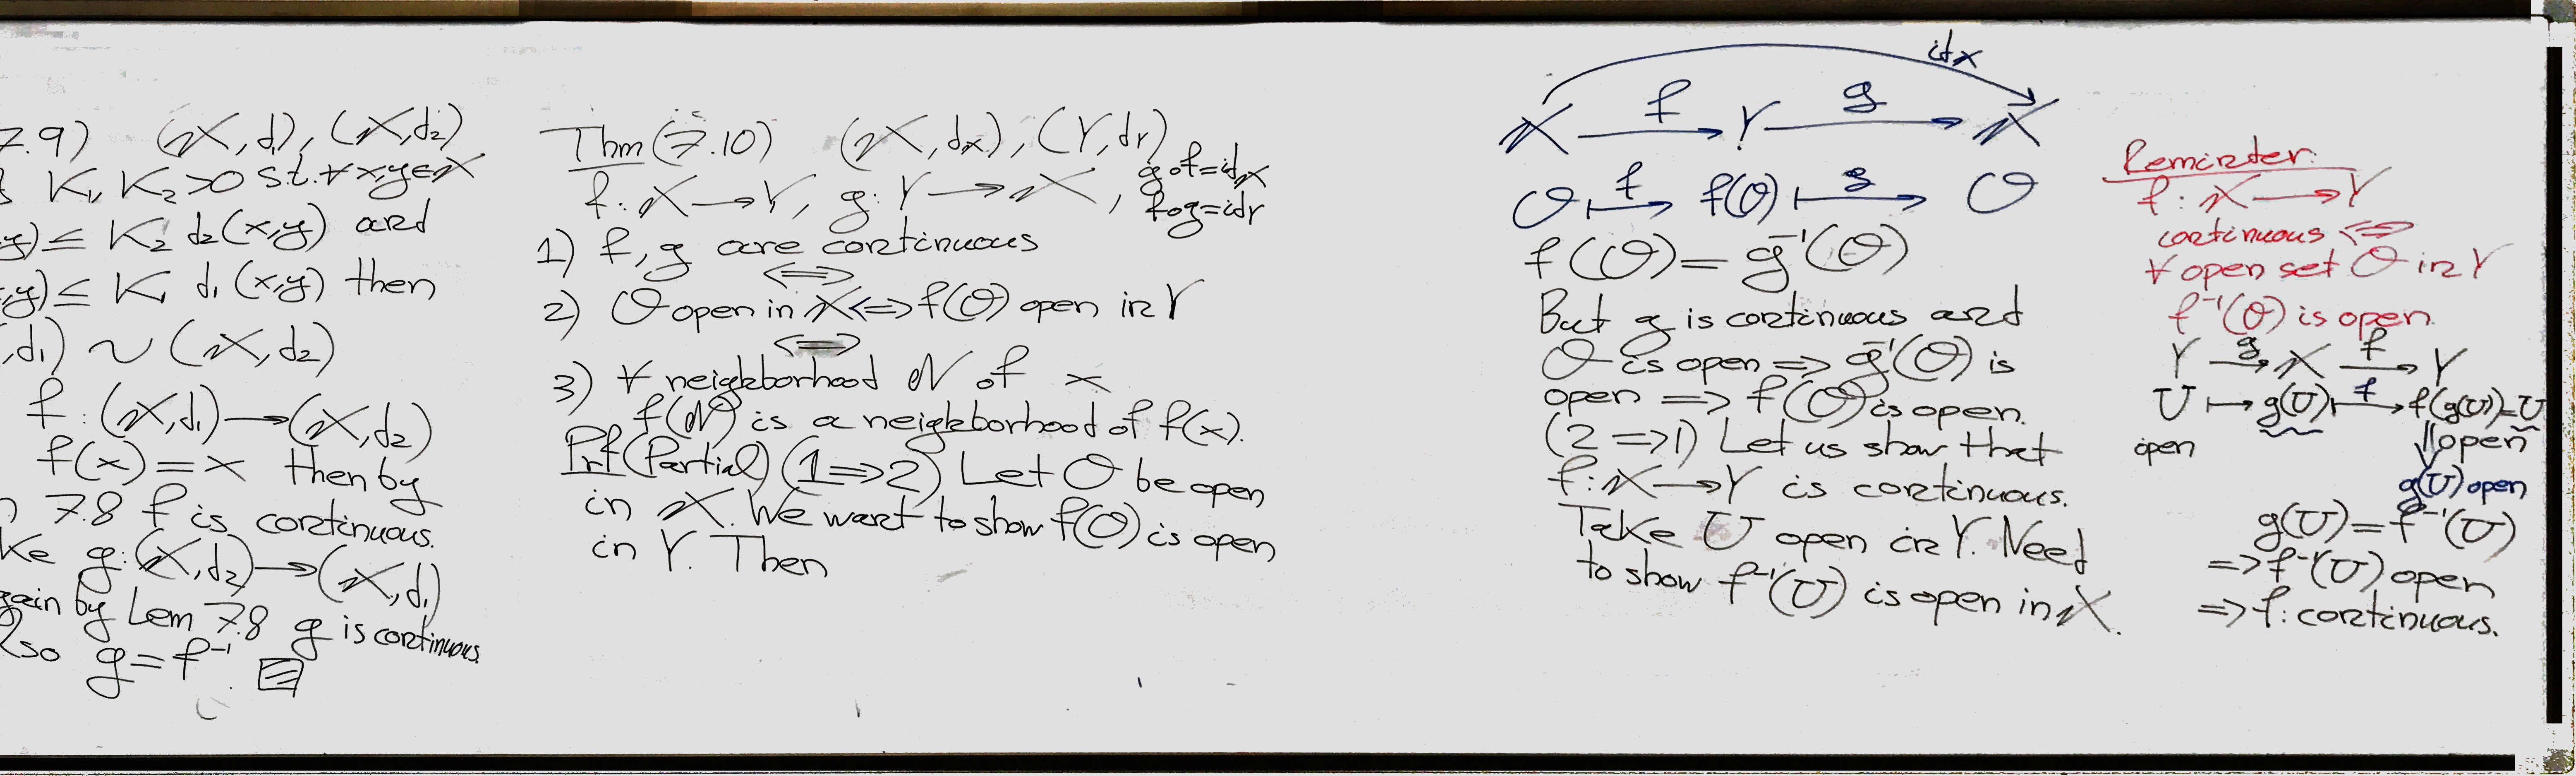 7.9) (X,d₁), (X,d₂)
K₁, K₂>0 s.t. ∀x,y∈X
y)≤ K₂ d₂(x,y) and
,y)≤ K₁ d₁(x,y) then
,d₁) ~ (X,d₂)
f:(X,d₁)→(X,d₂)
f(x)=x then by
7.8 f is continuous.
ke g:(X,d₂)→(X,d₁)
gain by Lem 7.8 g is continuous.
lso g=f⁻¹.
Thm(7.10) (X,dx), (Y,dY)
f:X→Y, g:Y→X, g∘f=idX
f∘g=idY
1) f,g are continuous
⇔
2) O open in X⇔f(O) open in Y
⇔
3) ∀ neighborhood N of x
f(N) is a neighborhood of f(x).
Prf(Partial) (1⇒2) Let O be open
in X. We want to show f(O) is open
in Y. Then
idX
X f→ Y g→ X
O f↦ f(O) g↦ O
f(O)=g⁻¹(O)
But g is continuous and
O is open ⇒ g⁻¹(O) is
open ⇒ f(O) is open.
(2⇒1) Let us show that
f:X→Y is continuous.
Take U open in Y. Need
to show f⁻¹(U) is open in X.
Reminder:
f:X→Y
continuous ⇔
∀ open set O in Y
f⁻¹(O) is open.
Y g→ X f→ Y
U ↦ g(U) f↦ f(g(U))=U
open ⇓ open
g(U) open
g(U)=f⁻¹(U)
⇒f⁻¹(U) open
⇒f: continuous.